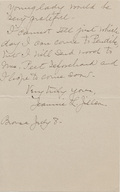 Young lady would be
very grateful.
I cannot tell just which
day I can come to
but I will send word to
Mrs. Part beforehand and
I hope to come soon.
Very truly yours,
Jeannie
July 3.